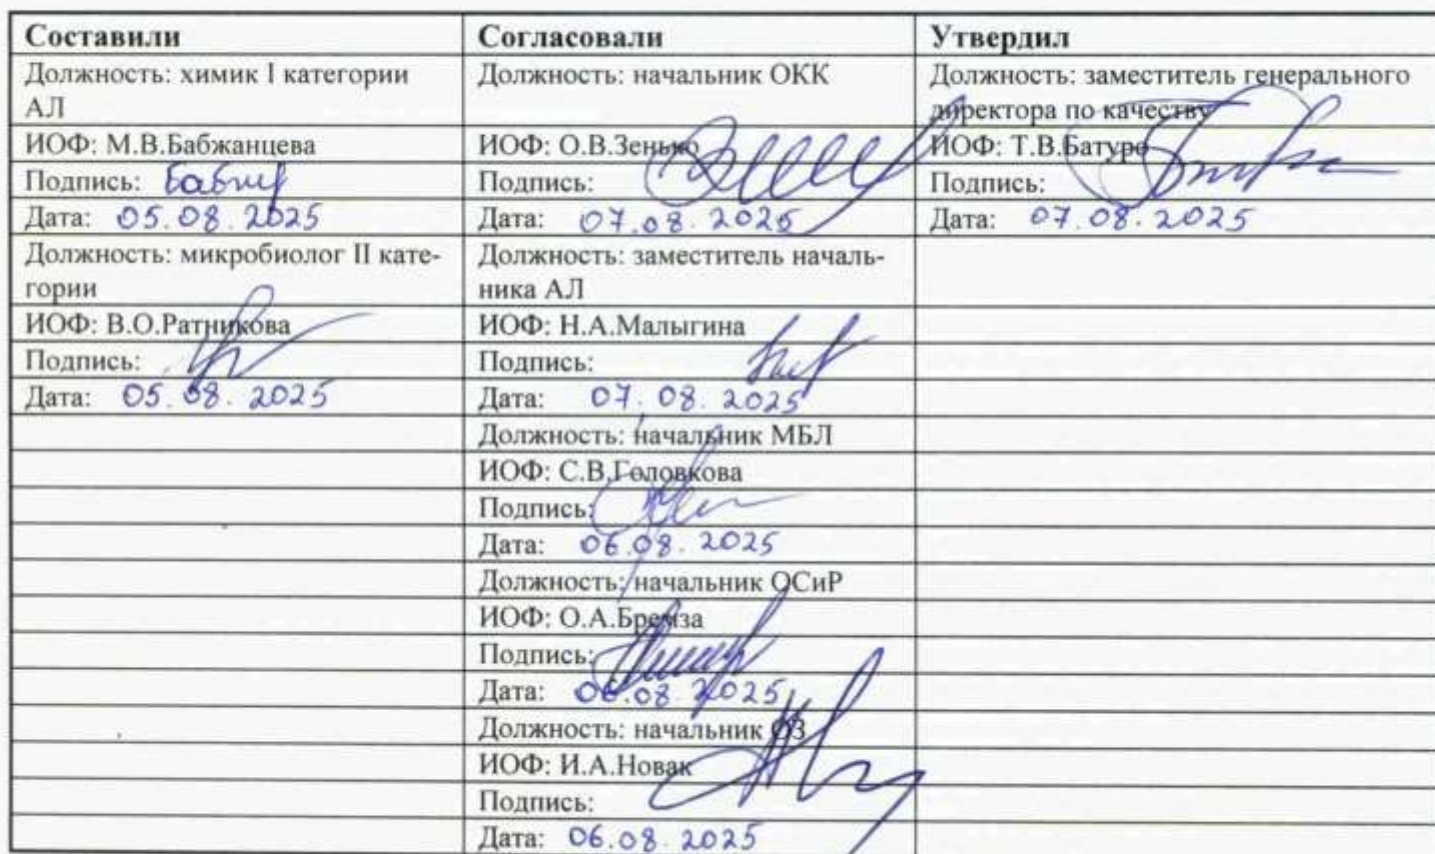 Составили
Согласовали
Утвердил
Должность: химик I категории
АЛ
Должность: начальник ОКК
Должность: заместитель генерального
директора по качеству
ИОФ: М.В.Бабжанцева
ИОФ: О.В.Зенько
ИОФ: Т.В.Батуро
Подпись:
Подпись:
Подпись:
Дата: 05.08.2025
Дата: 07.08.2025
Дата: 07.08.2025
Должность: микробиолог II кате-
гории
Должность: заместитель началь-
ника АЛ
ИОФ: В.О.Ратникова
ИОФ: Н.А.Малыгина
Подпись:
Подпись:
Дата: 05.08.2025
Дата: 07.08.2025
Должность: начальник МБЛ
ИОФ: С.В.Головкова
Подпись:
Дата: 06.08.2025
Должность: начальник ОСиР
ИОФ: О.А.Бремза
Подпись:
Дата: 06.08.2025
Должность: начальник ОЗ
ИОФ: И.А.Новак
Подпись:
Дата: 06.08.2025